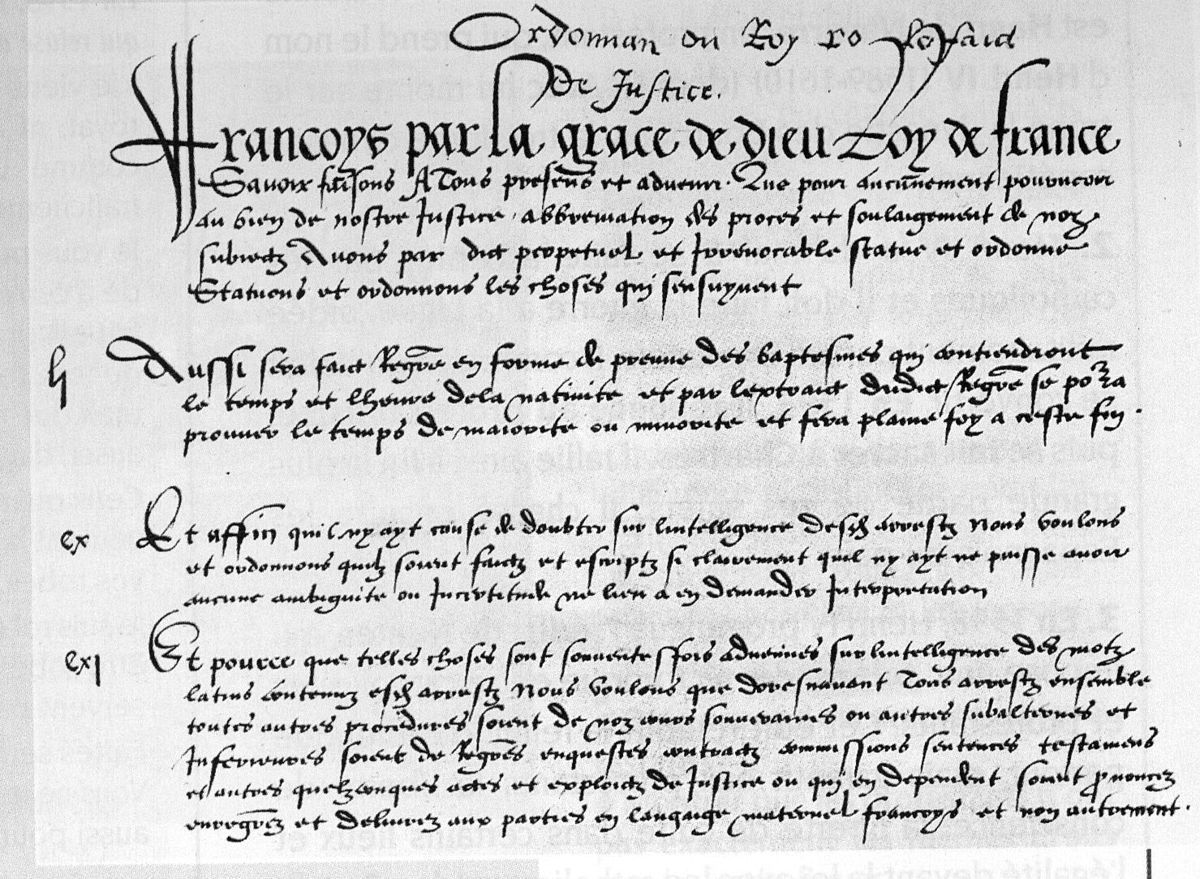 Ordonnan du Roy
De Justice.
Francoys par la grace de dieu Roy de france
Savoir faisons A Tous presens et advenir. Que pour aucunement pourveoir
au bien de nostre Justice, abbreviation des proces et soulaigement de noz
subiectz Avons par dict perpetuel et Irrevocable statue et ordonne
Statuons et ordonnons les choses qui sensuyvent
lj Aussi sera faict Regre en forme de preuve des baptesmes qui contiendront
le temps et lheure de la nativite et par lextraict dudict Regre se pora
prouver le temps de maiorite ou minorite et fera plaine foy a ceste fin.
cx Et affin quil ny ayt cause de doubter sur lintelligence desd arrestz Nous voulons
et ordonnons quilz soient faictz et escriptz si clairement quil ny ayt ne puisse avoir
aucune ambiguite ou Incertitude ne lieu a en demander Interpretation
cxj Et pource que telles choses sont souventesfois advenues sur lintelligence des motz
latins contenuz esd arrestz Nous voulons que doresnavant Tous arrestz ensemble
toutes autres procedures soient de noz cours souveraines ou autres subalternes et
Inferieures soient de Regres enquestes contractz commissions sentences testamens
et autres quelzconques actes et exploictz de Justice ou qui en dependent soient pnoncez
enregrez et delivrez aux parties en langaige maternel francoys et non autrement.